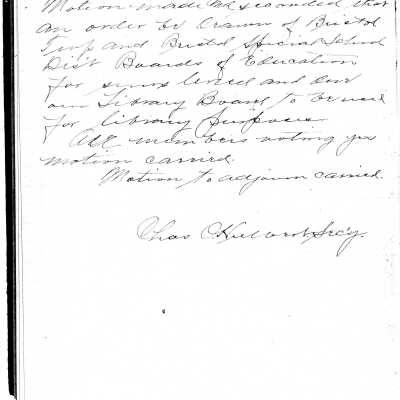 Motion made and seconded that
an order be drawn of Bristol
Twp and Bristol Special School
Dis't Boards of Education
for sums levied and
our Library Board to be used
for library purposes
All members voting yes
motion carried.
Motion to adjourn carried.
Chas Sec'y.